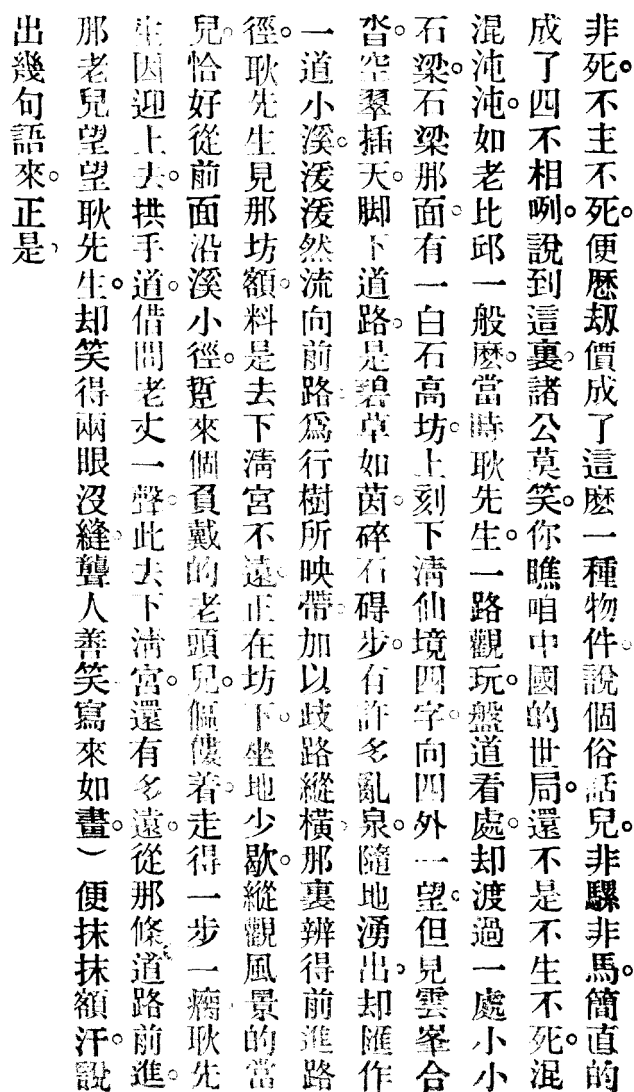 非死。不主不死。便歷刼價成了這麽一種物件。說個俗話兒。非騾非馬。簡直的
成了四不相咧。說到這裏。諸公莫笑。你瞧咱中國的世局。還不是不生不死。混
混沌沌。如老比邱一般麽。當時耿先生。一路觀玩。盤道看處。却渡過一處小小
石梁。石梁那面。有一白石高坊。上刻下清仙境四字。向四外一望。但見雲峯合
沓。空翠插天。脚下道路。是碧草如茵。碎石碍步。有許多亂泉。隨地湧出。却匯作
一道小溪。湲湲然流向前路。爲行樹所映帶。加以歧路縱橫。那裏辨得前進路
徑。耿先生見那坊額。料是去下清宮不遠。正在坊下。坐地少歇。縱觀風景的當
兒。恰好從前面沿溪小徑。踅來個負戴的老頭兒。傴僂着。走得一步一瘸。耿先
生因迎上去。拱手道。借問老丈一聲。此去下清宮。還有多遠。從那條道路前進。
那老兒望望耿先生。却笑得兩眼沒縫。聾人善笑寫來如畫。）便抹抹額汗。說
出幾句語來。正是、